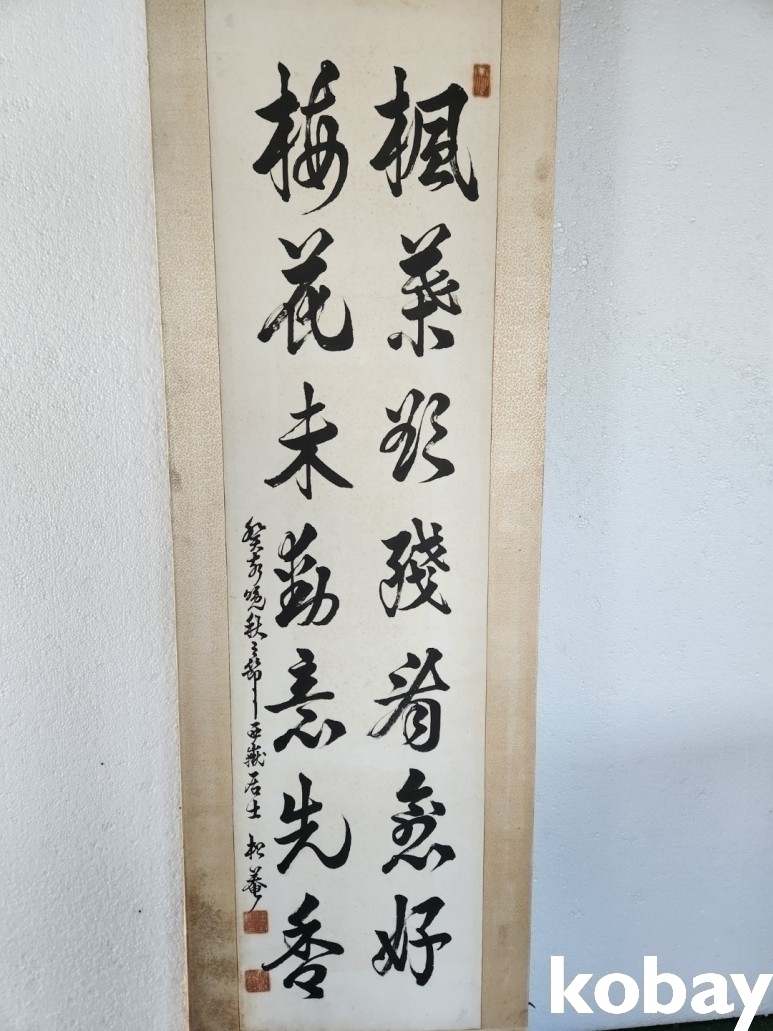 楓葉欲殘看愈好
梅花未動意先香
癸亥晩秋之節 西巖居士 松菴
kobay